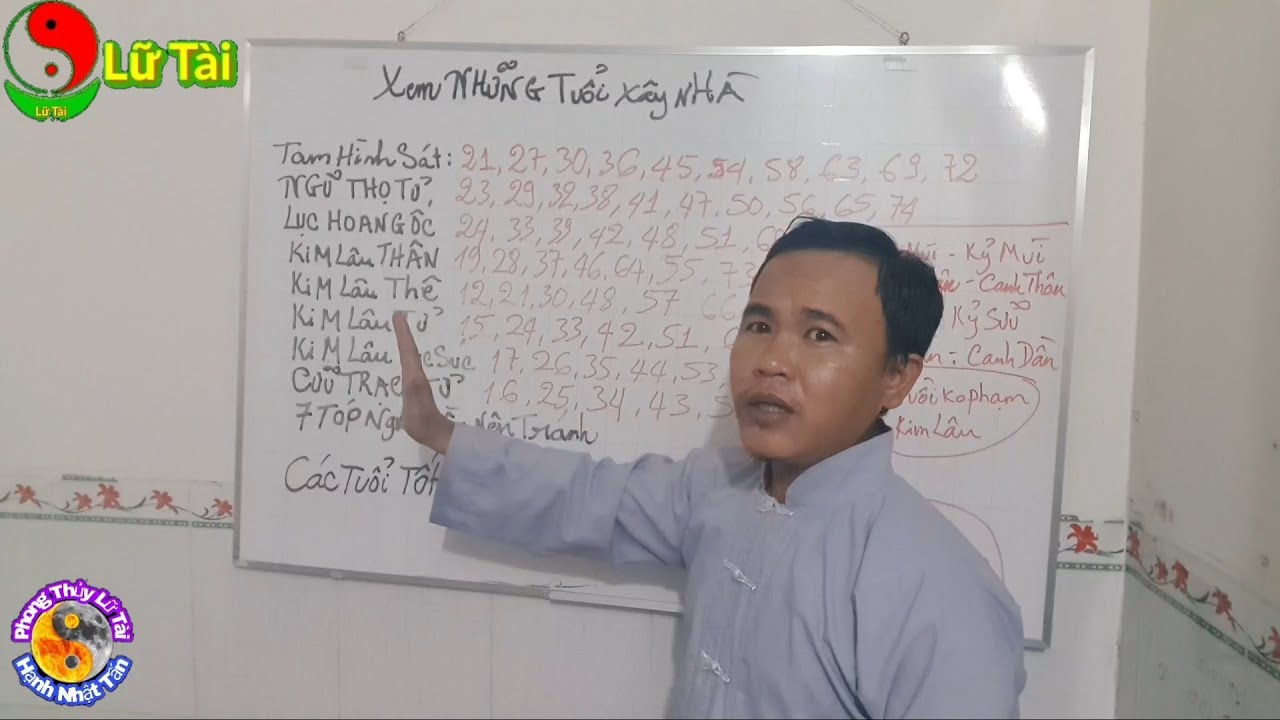 Lữ Tài
Lữ Tài
Xem NHỮNG TUỔI XÂY NHÀ
Tam Hình Sát: 21, 27, 30, 36, 45, 54, 58, 63, 69, 72
NGŨ THỌ TỬ, 23, 29, 32, 38, 41, 47, 50, 56, 65, 74
LỤC HOANG ỐC 24, 33, 39, 42, 48, 51,
KiM Lâu THÂN 19, 28, 37, 46, 64, 55, 73
KiM Lâu Thê 12, 21, 30, 48, 57 66
KiM Lâu Tử 15, 24, 33, 42, 51,
KiM Lâu Súc 17, 26, 35, 44, 53
CỬU TRẠCH TỬ 16, 25, 34, 43,
7 TÓP Nên Tránh
CÁC TUỔI TỐT
Mùi - Kỷ Mùi
- Canh Thân
Kỷ Sửu
: Canh Dần
ko phạm
Kim Lâu
Phong Thủy Lữ Tài
Hạnh Nhật Tấn